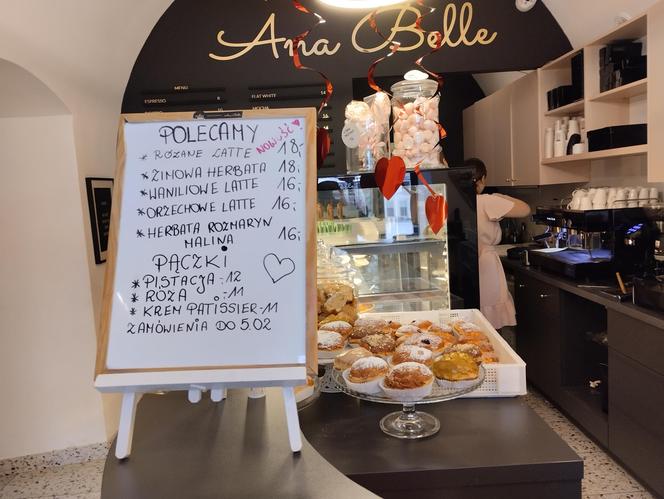 Ana Belle
MENU
ESPRESSO
FLAT WHITE
POLECAMY
NOWOŚĆ
* RÓŻANE LATTE 18,-
* ZIMOWA HERBATA 18,-
* WANILIOWE LATTE 16,-
* ORZECHOWE LATTE 16,-
* HERBATA ROZMARYN
MALINA 16,-
PĄCZKI
* PISTACJA - 12
* RÓŻA - 11
* KREM PATISSIER - 11
ZAMÓWIENIA DO 5.02